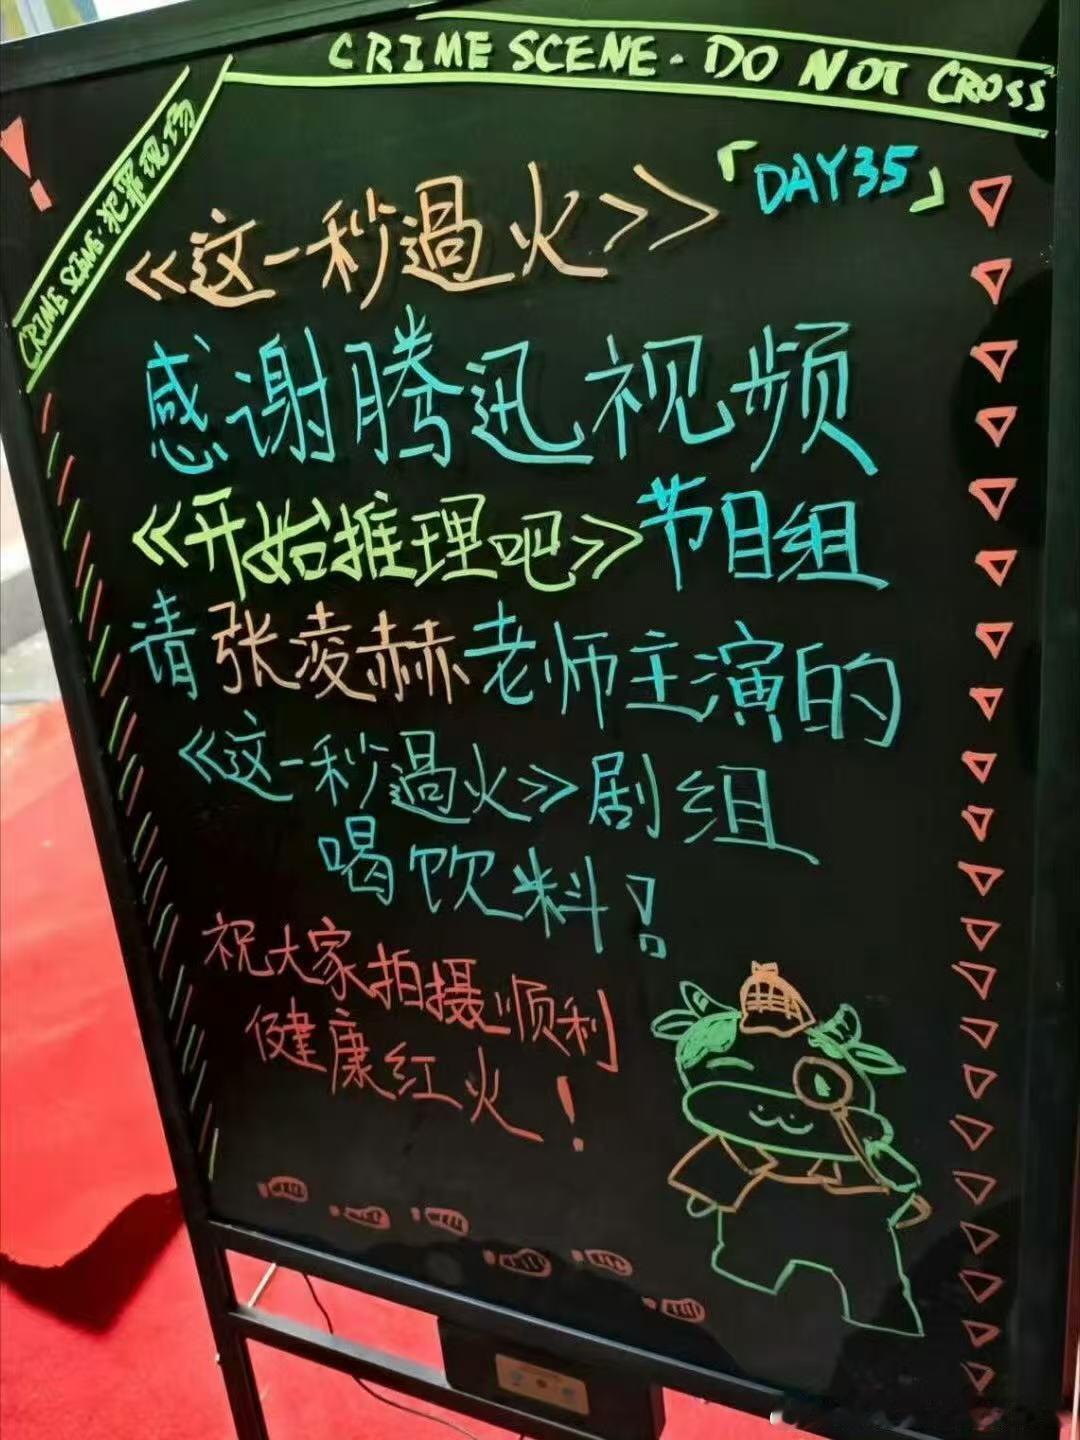 CRIME SCENE · DO NOT CROSS
CRIME SCENE · 犯罪现场
「DAY35」
《这一秒過火》
感谢腾迅视频
《开始推理吧》节目组
请张凌赫老师主演的
《这一秒過火》剧组
喝饮料!
祝大家拍摄顺利
健康红火!